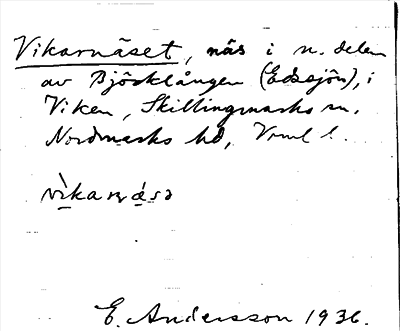 Vikarnäset, näs i n. delen
av Björklången (Edssjön), i
Viken, Skillingmarks sn.
Nordmarks hd, Vrml l.
vìkaṇạ́sə
E. Andersson 1936.